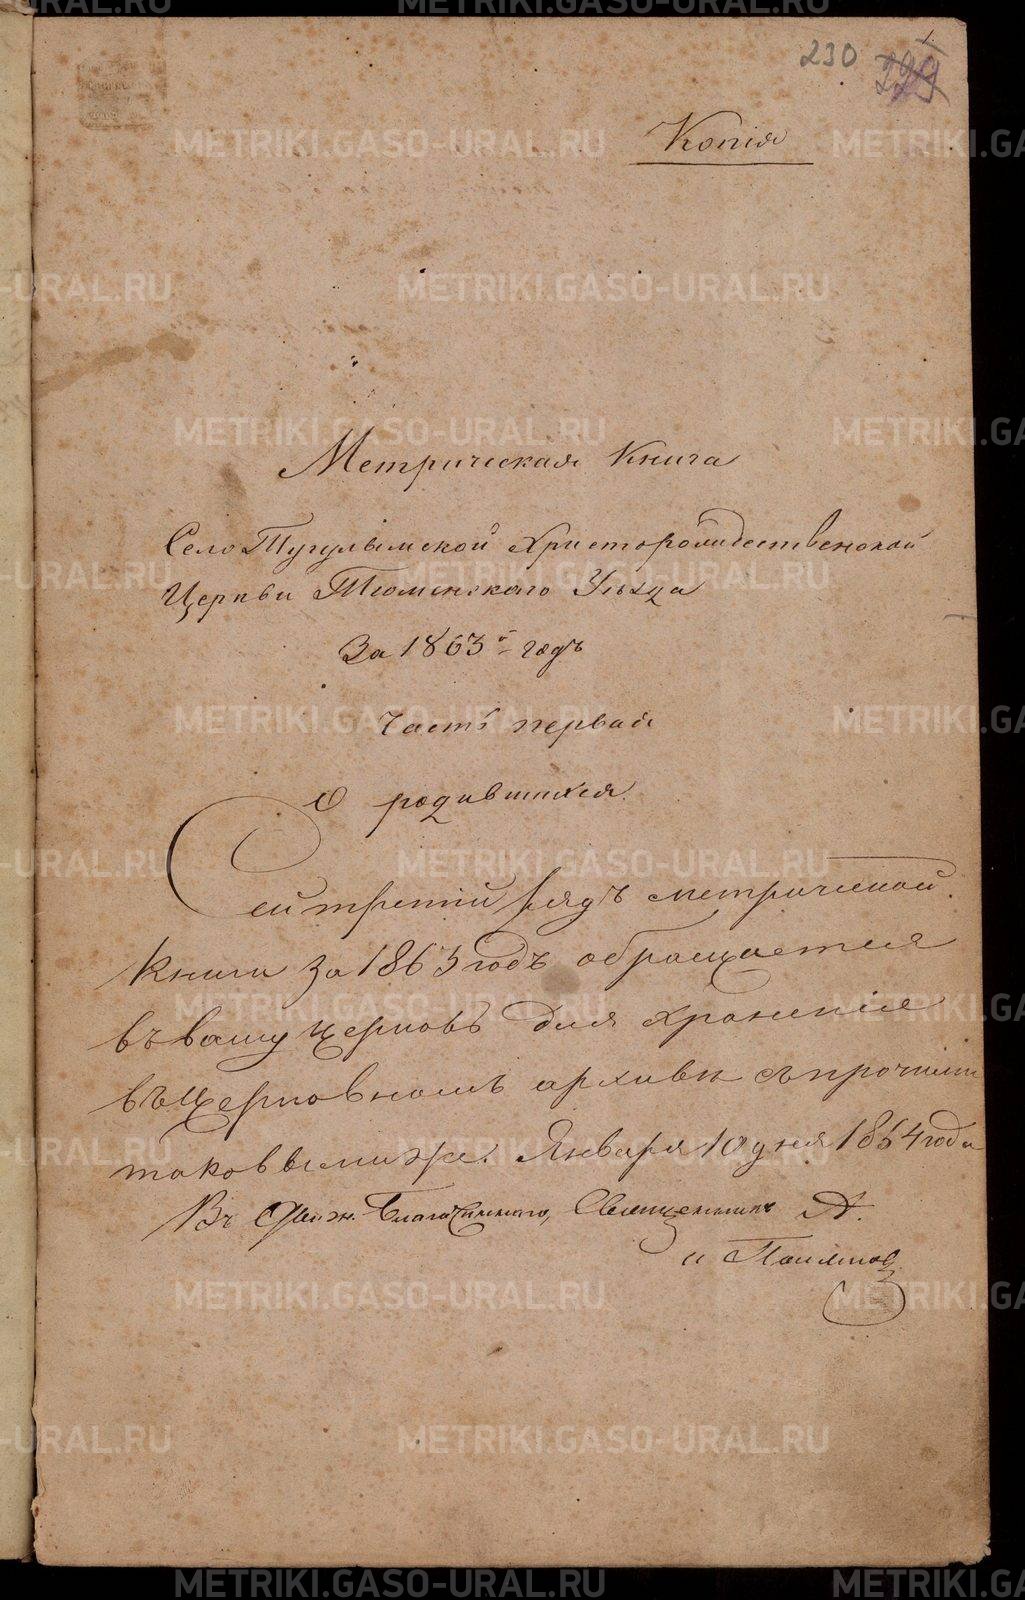 230 229
1.
Копія
Метрическая Книга
Село Тугулымской Христорождественской
Церкви Тюменскаго Уѣзда
За 1863й годъ
Часть первая
О родившихся.
Сей третій метрической
Книги за 1863 годъ обращается
въ вашу церковь для храненія
въ Церковномъ архивѣ съ прочими
таковыми же. Января 10 дня 1864 года
Въ Благочиннаго, Священникъ А.
METRIKI.GASO-URAL.RU